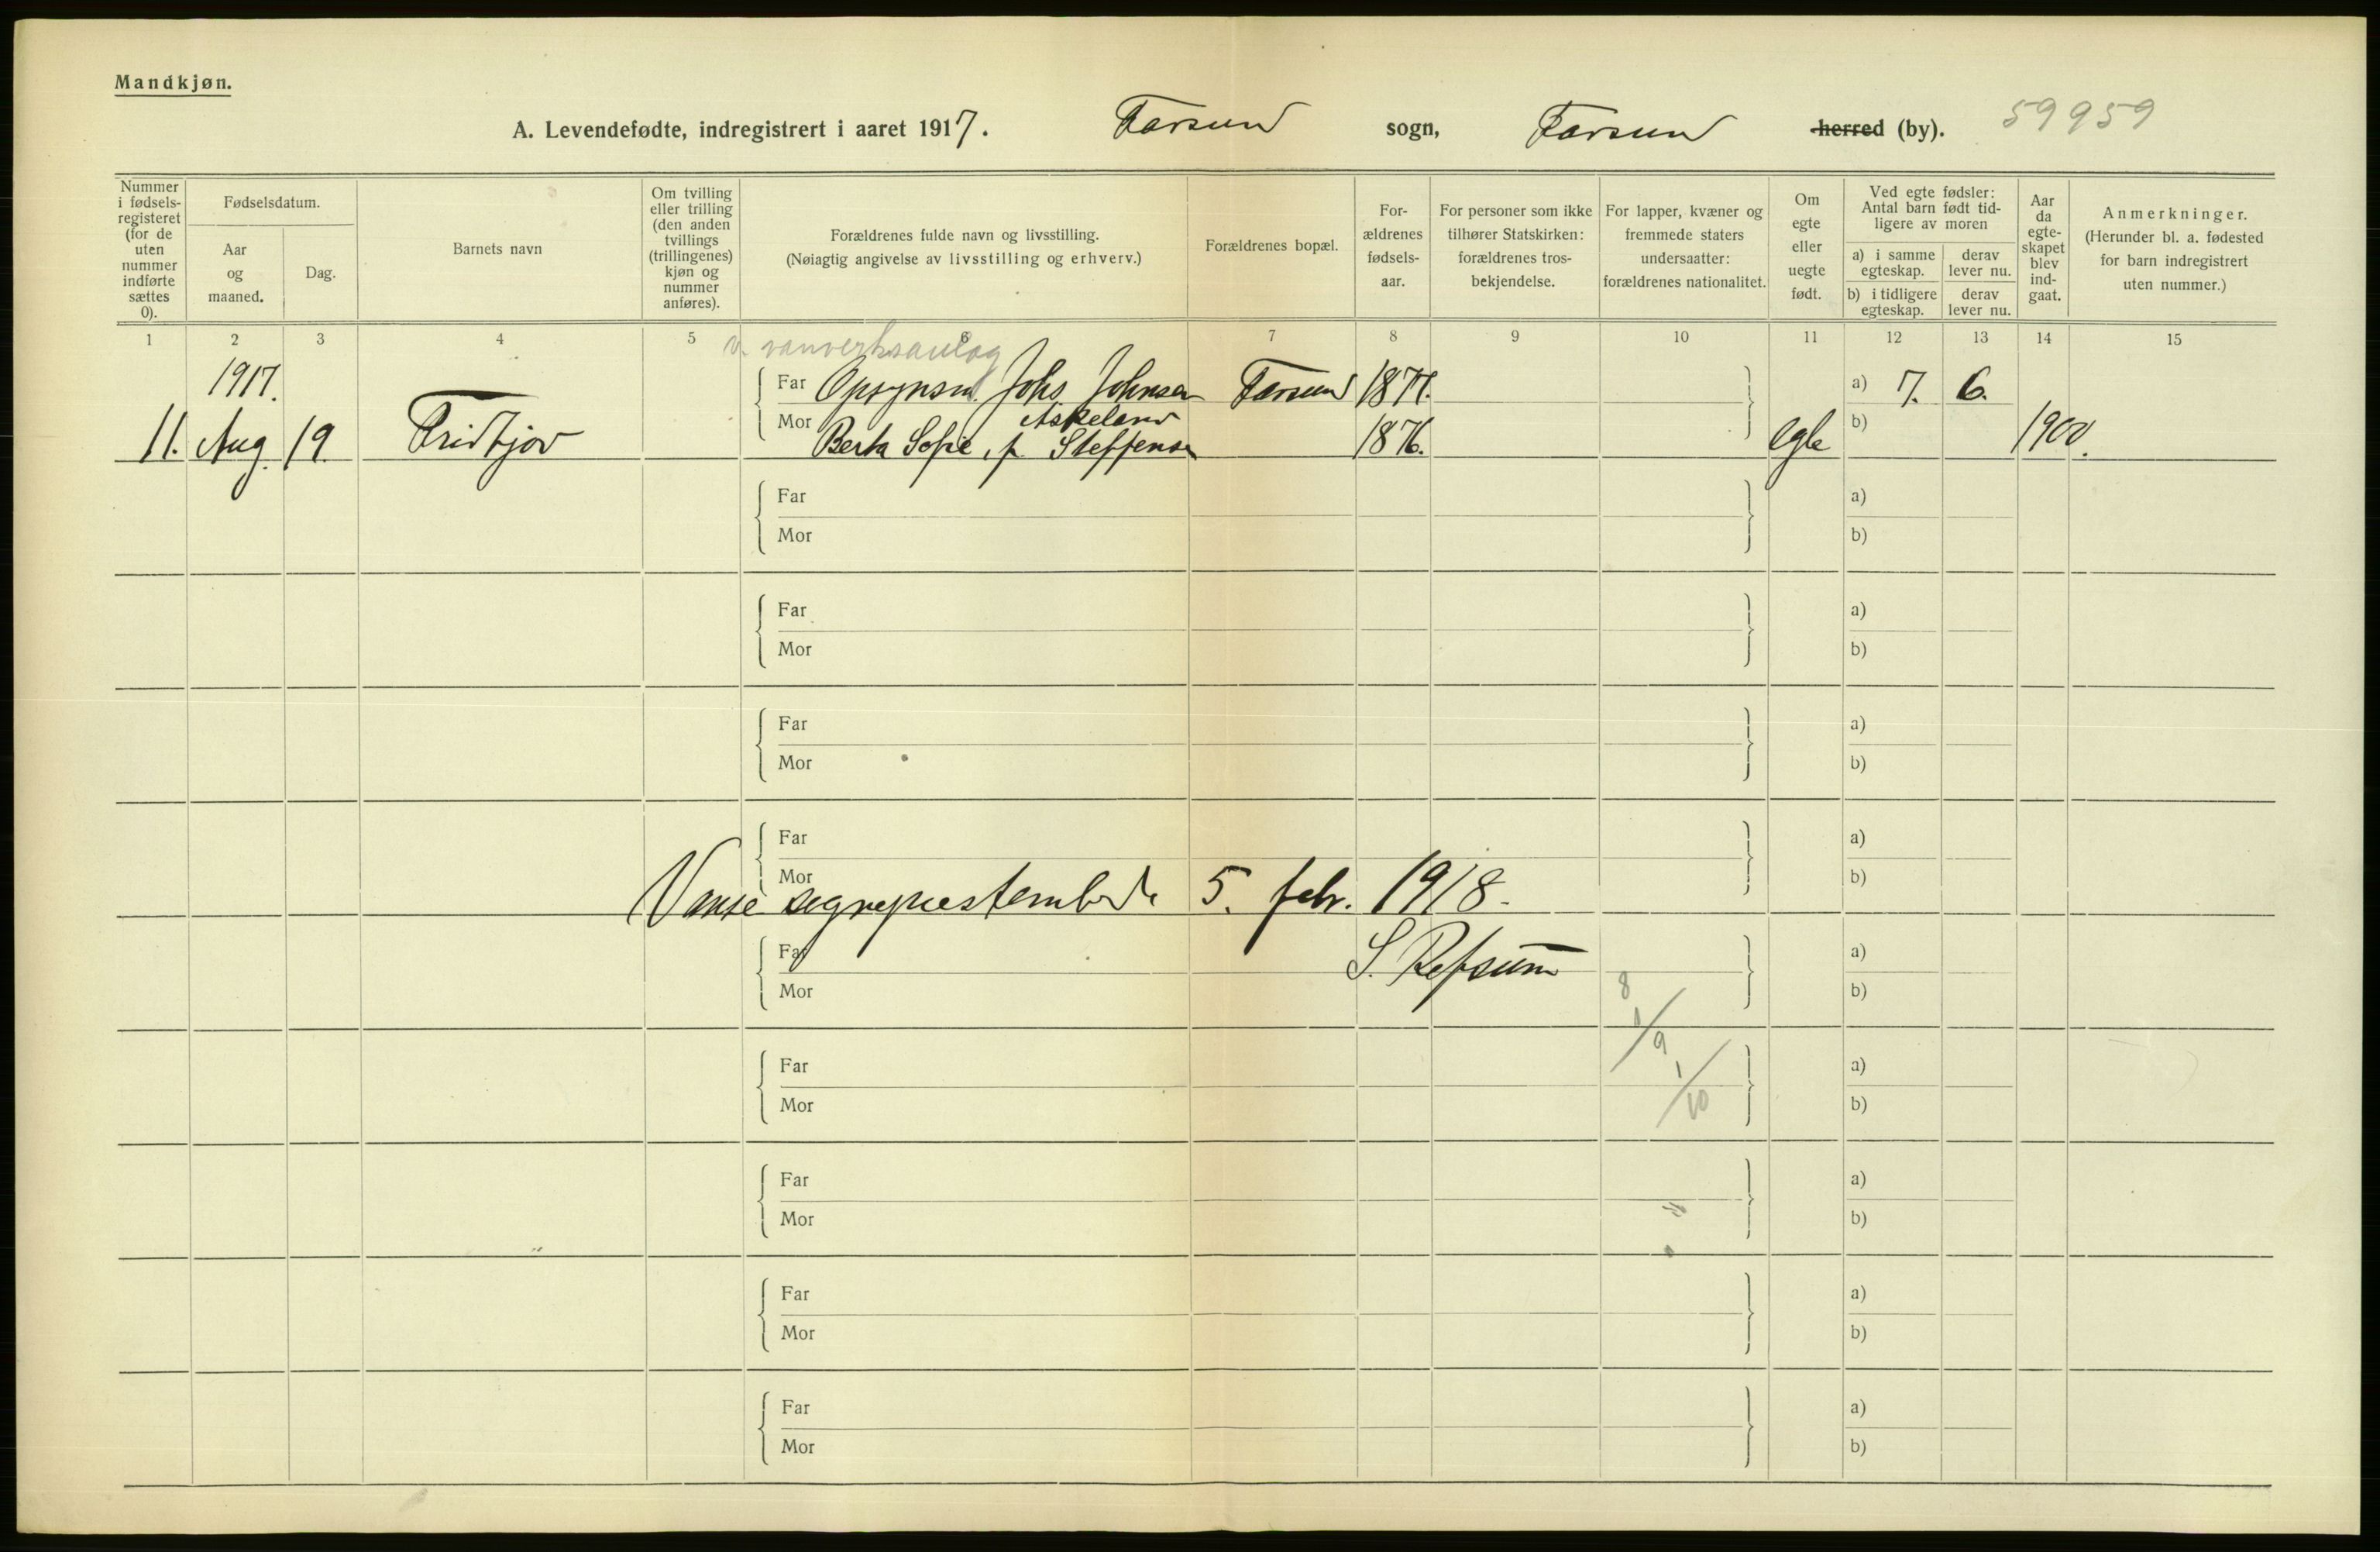 Mandkjøn.
A. Levendefødte, indregistrert i aaret 1917. Farsund sogn, Farsund herred (by). 59959
Nummer i fødselsregisteret (for de uten nummer indførte sættes 0).
Fødselsdatum.
Aar og maaned.
Dag.
Barnets navn
Om tvilling eller trilling (den anden tvillings (trillingenes) kjøn og nummer anføres).
Forældrenes fulde navn og livsstilling.
(Nøiagtig angivelse av livsstilling og erhverv.)
Forældrenes bopæl.
Forældrenes fødselsaar.
For personer som ikke tilhører Statskirken: forældrenes trosbekjendelse.
For lapper, kvæner og fremmede staters undersaatter: forældrenes nationalitet.
Om egte eller uegte født.
Ved egte fødsler: Antal barn født tidligere av moren
a) i samme egteskap.
derav lever nu.
b) i tidligere egteskap.
derav lever nu.
Aar da egteskapet blev indgaat.
Anmerkninger.
(Herunder bl. a. fødested for barn indregistrert uten nummer.)
1 2 3 4 5 6 7 8 9 10 11 12 13 14 15
v. vanverksanlæg
1917.
Far Opsynsm. Johs Johnsen Farsund 1871. a) 7. 6.
Askeland
11. Aug. 19. Fridtjov Mor Berta Sofie, f. Steffensen 1876. egte b) 1900.
Far a)
Mor b)
Far a)
Mor b)
Far a)
Mor b)
Far a)
Mor b)
Vanse sogneprestembede 5. febr. 1918.
Far a)
S. Refsum
Mor b)
8
1/9
Far a)
1/10
Mor b)
Far a)
Mor b)
Far a)
Mor b)
Far a)
Mor b)